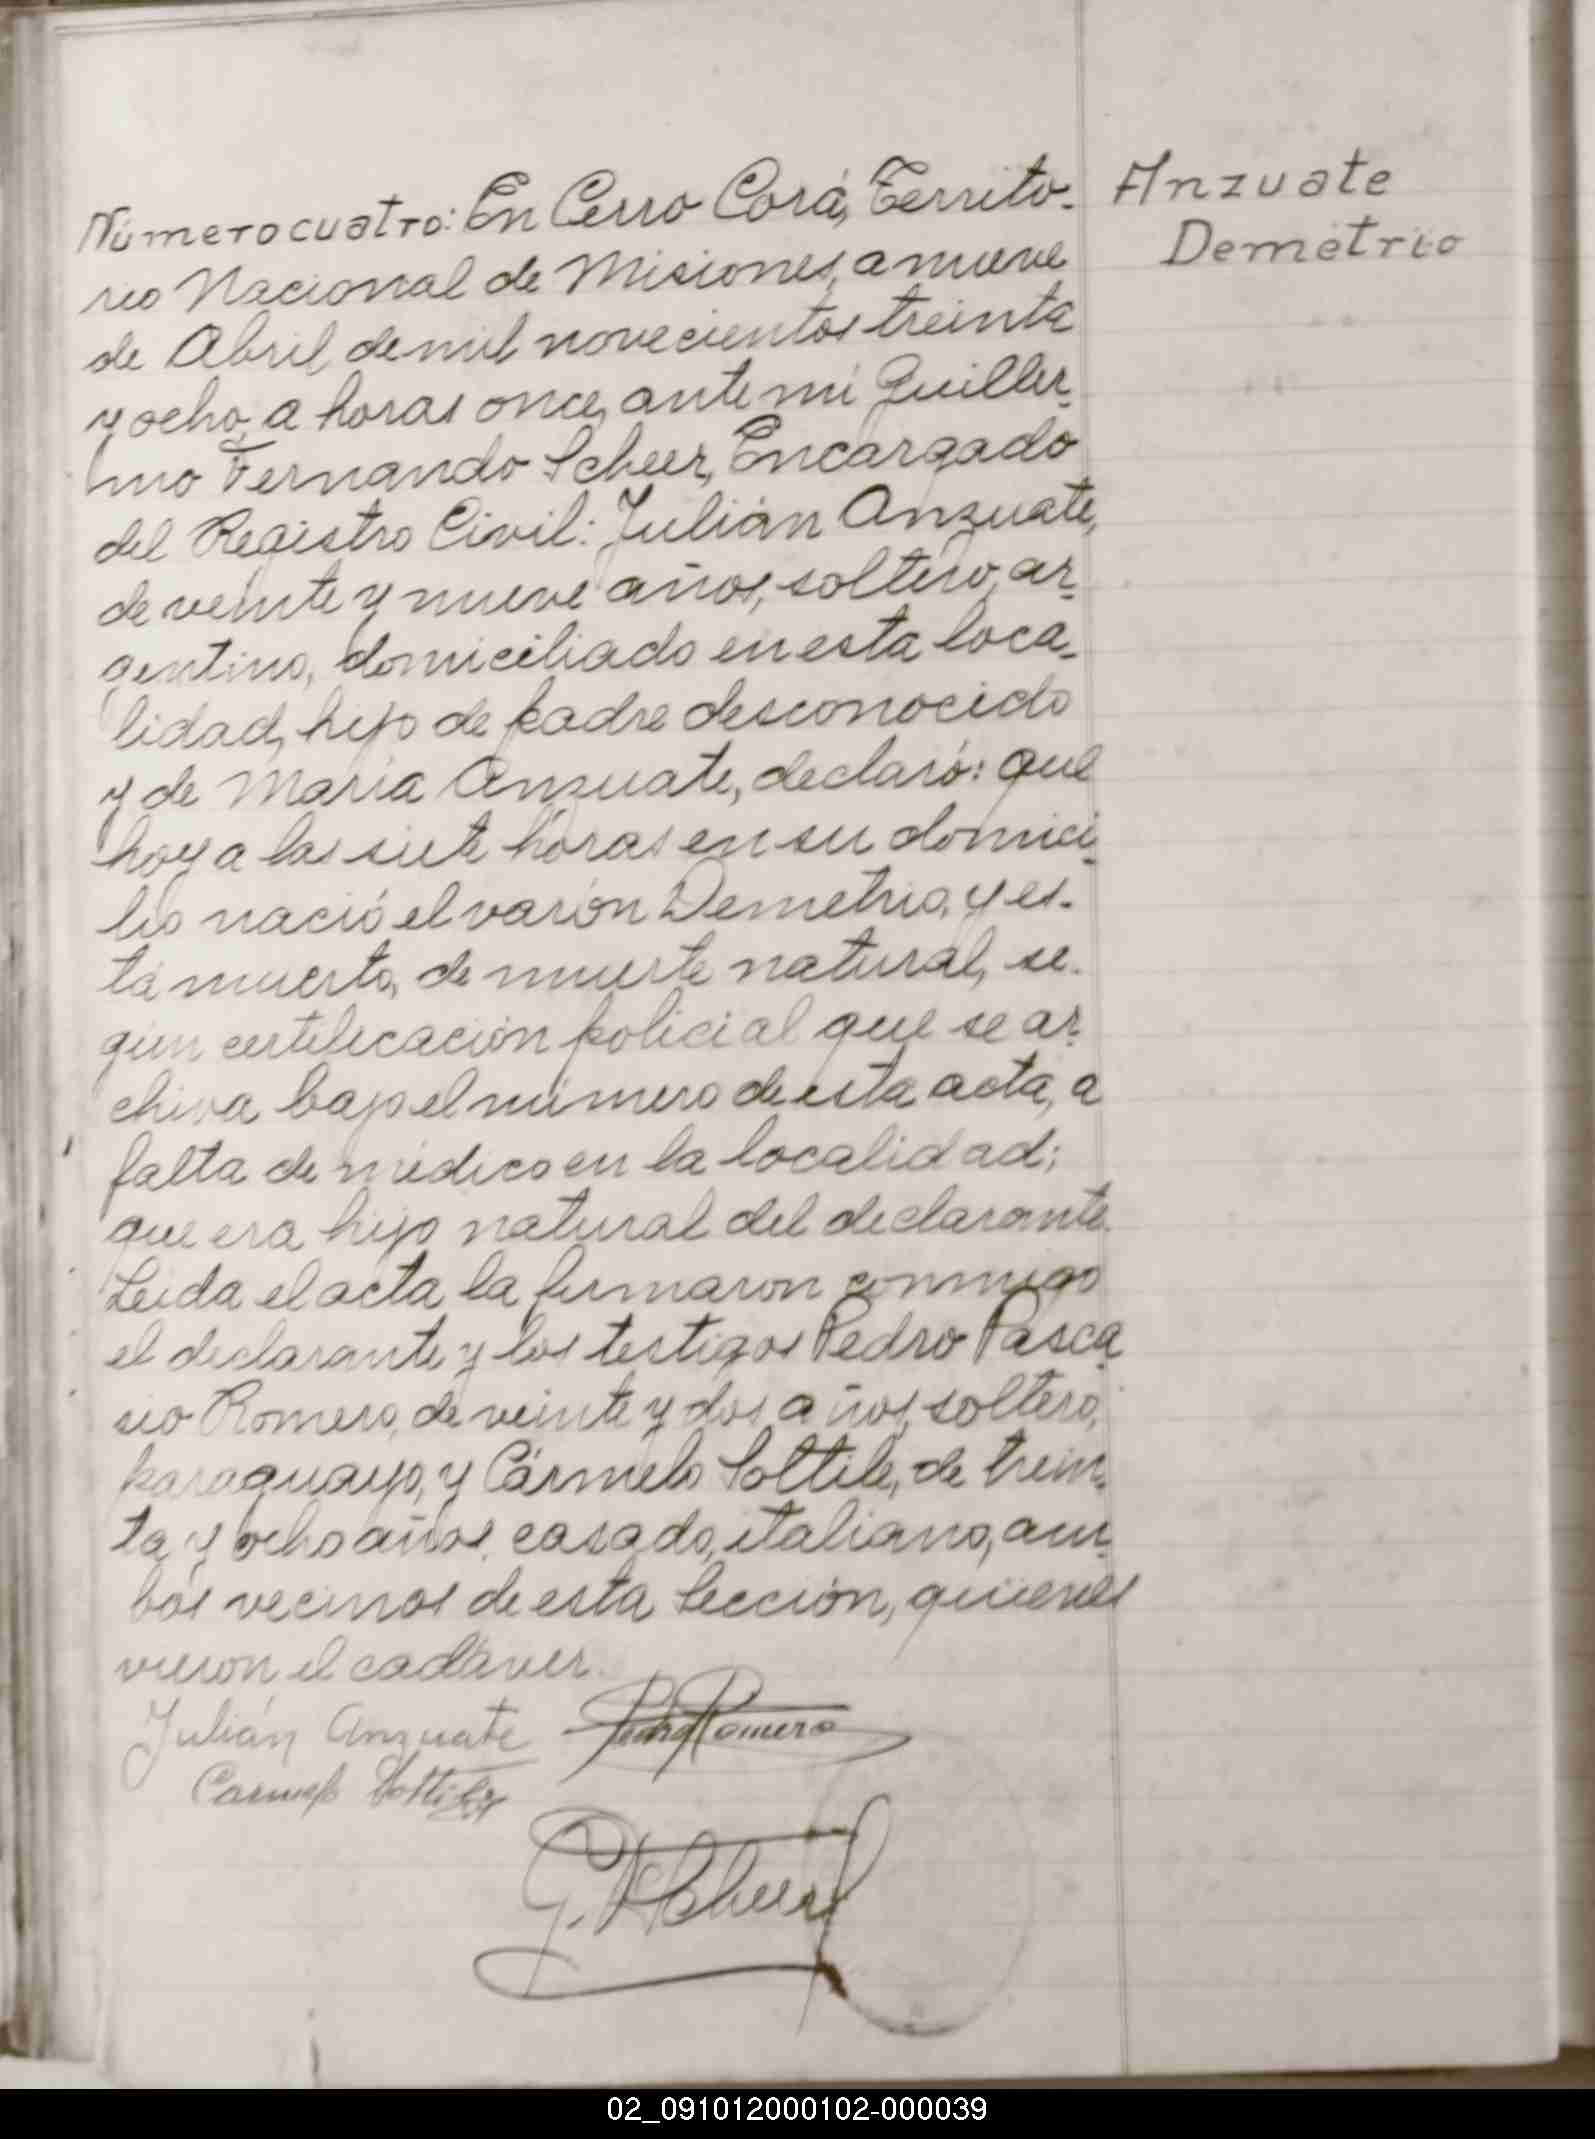 Número cuatro: En Cerro Corá, Territo-
rio Nacional de Misiones, a nueve
de Abril de mil novecientos treinta
y ocho, a horas once, ante mi Guiller-
mo Fernando Scheer, Encargado
del Registro Civil: Julián Anzuate,
de veinte y nueve años, soltero, ar-
gentino, domiciliado en esta loca-
lidad, hijo de padre desconocido
y de María Anzuate, declaró: que
hoy a las siete horas en su domici-
lio nació el varón Demetrio, y es-
tá muerto, de muerte natural, se-
gún certificación policial que se ar-
chiva bajo el número de esta acta, a
falta de médico en la localidad;
que era hijo natural del declarante.
Leída el acta la firmaron conmigo
el declarante y los testigos Pedro Pasca-
sio Romero, de veinte y dos años, soltero,
paraguayo, y Cármelo Sottile, de trein-
ta y ocho años, casado, italiano, am-
bos vecinos de esta Sección, quienes
vieron el cadáver.
Julián Anzuate Pedro Romero
Carmelo Sottile
G. F. Scheer
Anzuate
Demetrio
02_091012000102-000039